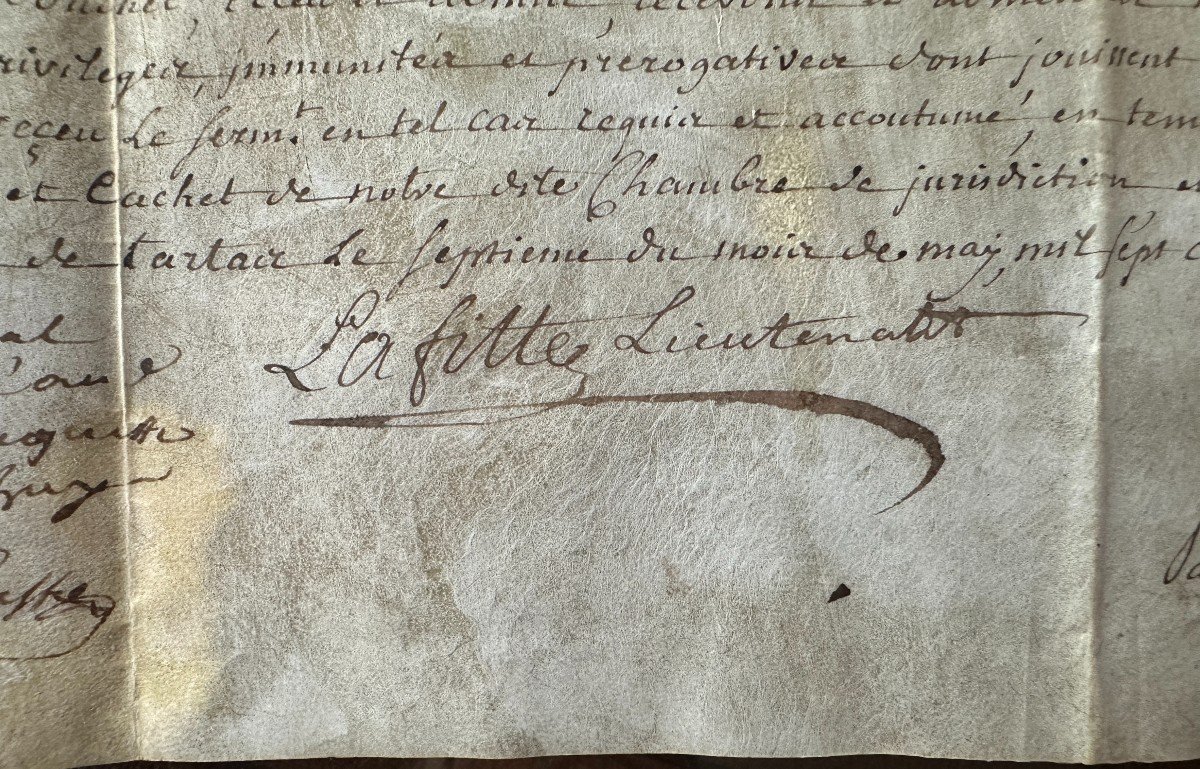 rivileges, jmmunités et prérogatives dont jouissent
receu le serm.t en tel cas requis et accoutumé, en tem
et Cachet de notre dite Chambre de jurisdiction e
de tartas le septieme du mois de may mil sept c
al
Lafitte Lieutenant